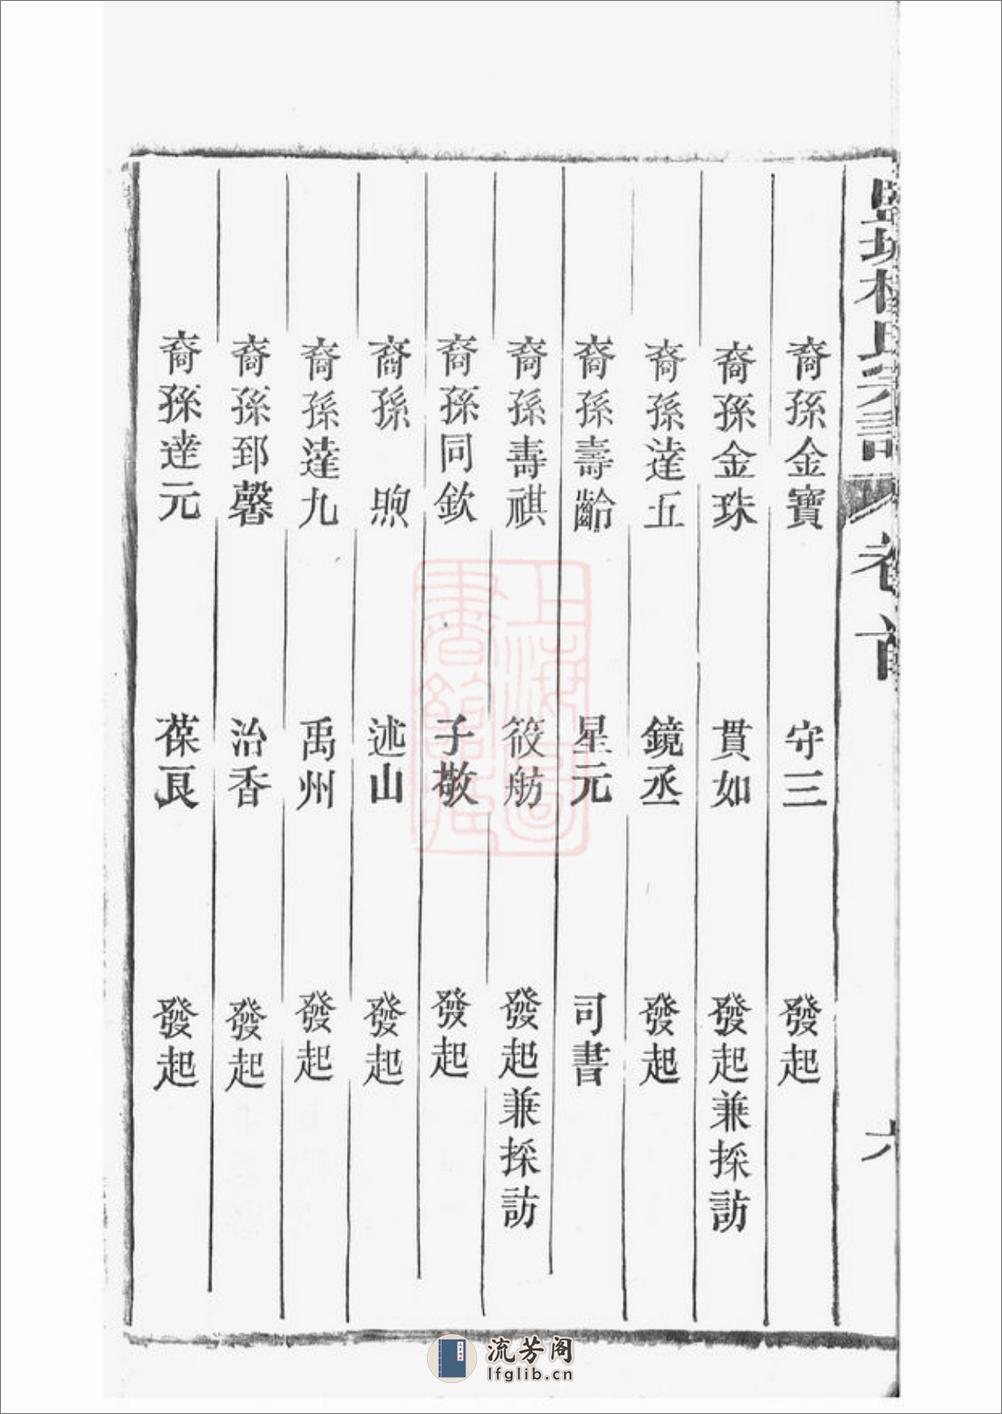 裔孫金寶 守三 發起
裔孫金珠 貫如 發起兼採訪
裔孫達五 鏡丞 發起
裔孫壽齡 星元 司書
裔孫壽祺 筱舫 發起兼採訪
裔孫同欽 子敬 發起
裔孫煦 述山 發起
裔孫達九 禹州 發起
裔孫郅馨 治香 發起
裔孫達元 葆良 發起
卷首
六
上海圖書館藏
流芳阁
lfglib.cn